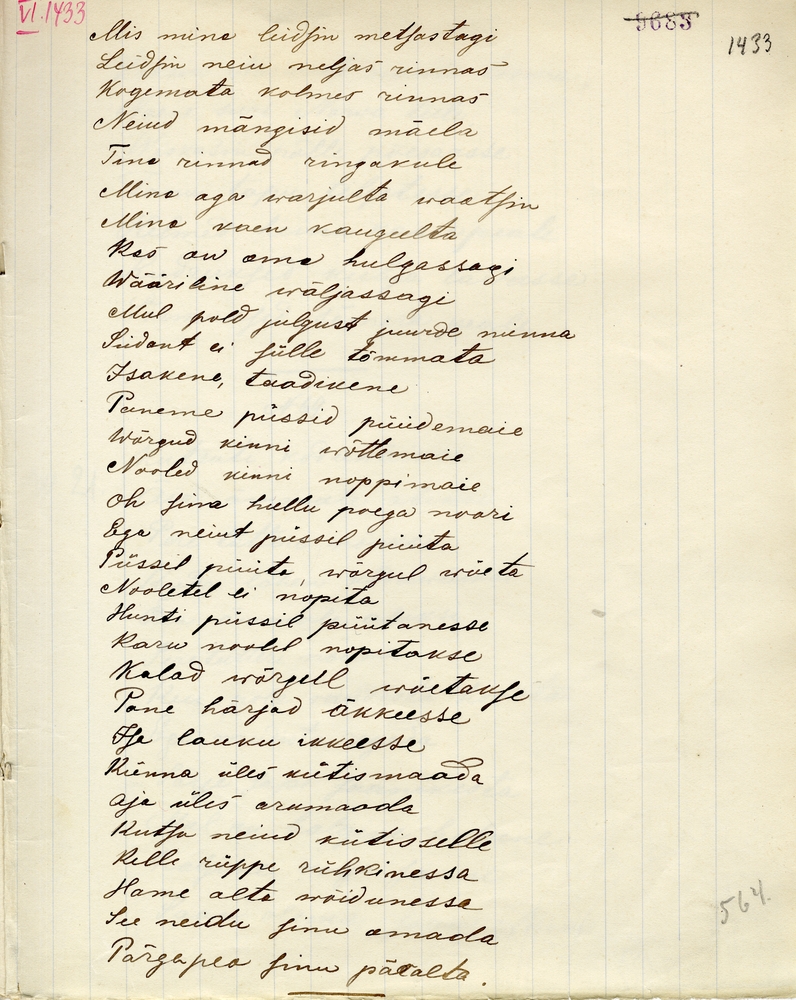 VI.1433
9683
1433
Mis mina leidsin metsastagi
Leidsin neiu neljas rinnas
Kogemata kolmes rinnas
Neiud mängisid mäela
Tina rinnad ringakule
Mina aga warjulta waatsin
Mina kaen kaugeelta
Kas on oma hulgassagi
Wääriline wäljassagi
Mul pold julgust juurde minna
Südant ei sülle tõmmata
Isakene, taadikene
Paneme püssid püüdemaie
Wõrgud kinni wõttemaie
Nooled kinni noppimaie
Oh sina hullu poega noori
Ega neiut püssil püüta
Püssil püüta, wõrgul wõeta
Nooletel ei nopita
Hunti püssil püütanesse
Karu noolil nopitakse
Kalad wõrgell wõetakse
Pane härjad äkkeesse
Ise lauku ikkeesse
Künna üles kütismaada
Aja üles arumaada
Kutsu neiud kütisselle
Kelle rüppe rühkinessa
Hame alta wõidunessa
See neidu sinu omada
Pärgapea sinu pätalta.
564.